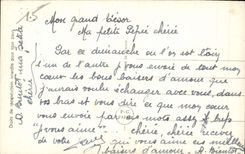 15
Mon grand trésor
Ma petite Pépé chérie
Par ce dimanche ou l'on est loin
l'un de l'autre je vous envoie de tout mon
coeur les bons baisers d'amour que
j'aurais voulu échanger avec vous, dans
vos bras et vous dire ce que mon coeur
vous envoie par mots
"je vous aime" chérie, chérie recevez
de votre qui vous aime ses milles
baisers d'amour. A Bientôt
A Bientôt ma petite
chérie
Droits de reproduction